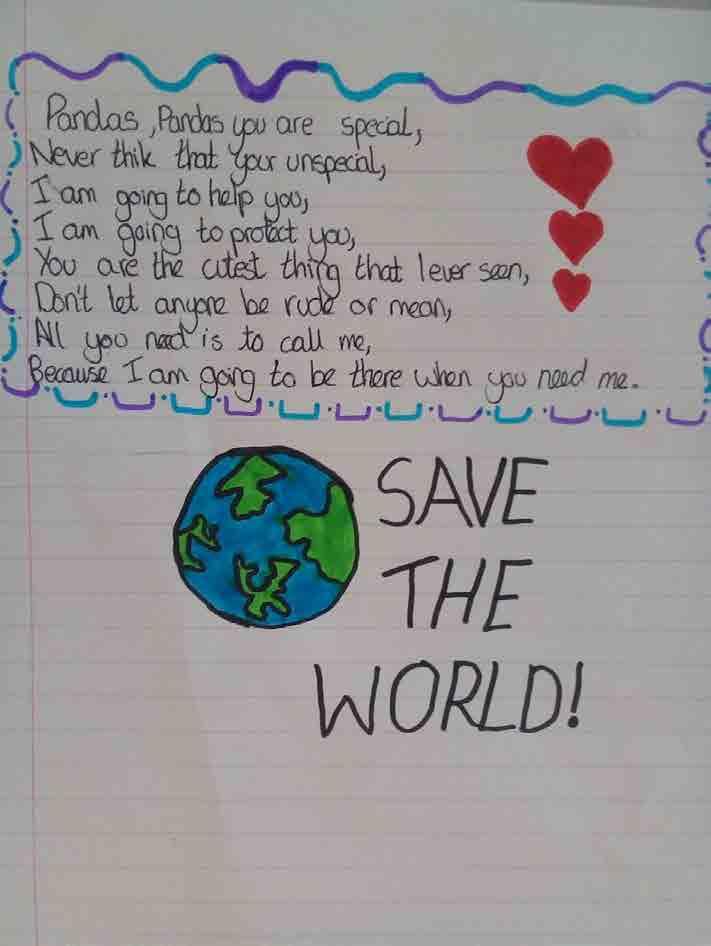 Pandas, Pandas you are special,
Never thik that your unspecial,
I am going to help you,
I am going to protect you,
You are the cutest thing that I ever seen,
Don't let anyone be rude or mean,
All you need is to call me,
Because I am going to be there when you need me.
SAVE
THE
WORLD!